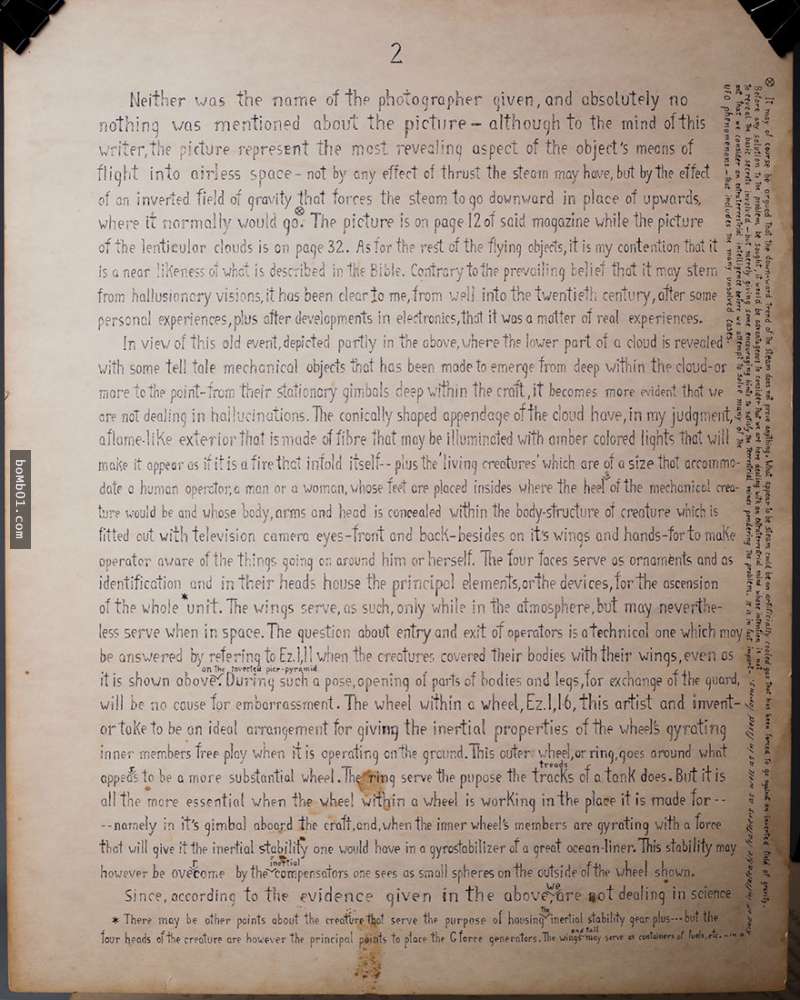 2
Neither was the name of the photographer given, and absolutely no
nothing was mentioned about the picture - although to the mind of this
writer, the picture represent the most revealing aspect of the object's means of
flight into airless space - not by any effect of thrust the steam may have, but by the effect
of an inverted field of gravity that forces the steam to go downward in place of upwards,
where it normally would go.⊗ The picture is on page 12 of said magazine while the picture
of the lenticular clouds is on page 32. As for the rest of the flying objects, it is my contention that it
is a near likeness of what is described in the Bible. Contrary to the prevailing belief that it may stem
from hallusionary visions, it has been clear to me, from well into the twentieth century, after some
personal experiences, plus after developments in electronics, that it was a matter of real experiences.
In view of this old event, depicted partly in the above, where the lower part of a cloud is revealed
with some tell tale mechanical objects that has been made to emerge from deep within the cloud - or
more to the point - from their stationary gimbals deep within the craft, it becomes more evident that we
are not dealing in hallucinations. The conically shaped appendage of the cloud have, in my judgment,
a flame-like exterior that is made of fibre that may be illuminated with amber colored lights that will
make it appear as if it is a fire that infold itself -- plus the 'living creatures' which are of a size that accommo-
date a human operator, a man or a woman, whose feet are placed insides where the heels of the mechanical crea-
ture would be and whose body, arms and head is concealed within the body-structure of creature which is
fitted out with television camera eyes - front and back - besides on it's wings and hands - for to make
operator aware of the things going on around him or herself. The four faces serve as ornaments and as
identification and in their heads house the principal elements, or the devices, for the ascension
of the whole* unit. The wings serve, as such, only while in the atmosphere, but may neverthe-
less serve when in space. The question about entry and exit of operators is a technical one which may
be answered by refering to Ez.1,11 when the creatures covered their bodies with their wings, even as
on the inverted picr-pyramid
it is shown above. During such a pose, opening of parts of bodies and legs, for exchange of the guard,
will be no cause for embarrassment. The wheel within a wheel, Ez.1,16, this artist and invent-
or take to be an ideal arrangement for giving the inertial properties of the wheel's gyrating
inner members free play when it is operating on the ground. This outer wheel, or ring, goes around what
appears to be a more substantial wheel. The ring serve the pupose the tracks of a tank does. But it is
treads
all the more essential when the wheel within a wheel is working in the place it is made for --
-- namely in it's gimbal aboard the craft, and, when the inner wheel's members are gyrating with a force
that will give it the inertial stability one would have in a gyrostabilizer of a great ocean-liner. This stability may
inertial
however be overcome by the compensators one sees as small spheres on the outside of the wheel shown.
Since, according to the evidence given in the above, we are not dealing in science
* There may be other points about the creature that serve the purpose of housing the inertial stability gear plus --- but the
four heads of the creature are however the principal points to place the G force generators. The wings and tail may serve as containers of fuels, etc. -
⊗ It may of course be argued that the down-ward trend of the steam does not prove anything. What appear to be steam could be an artificially cooled gas that has been forced to go against an inverted field of gravity.